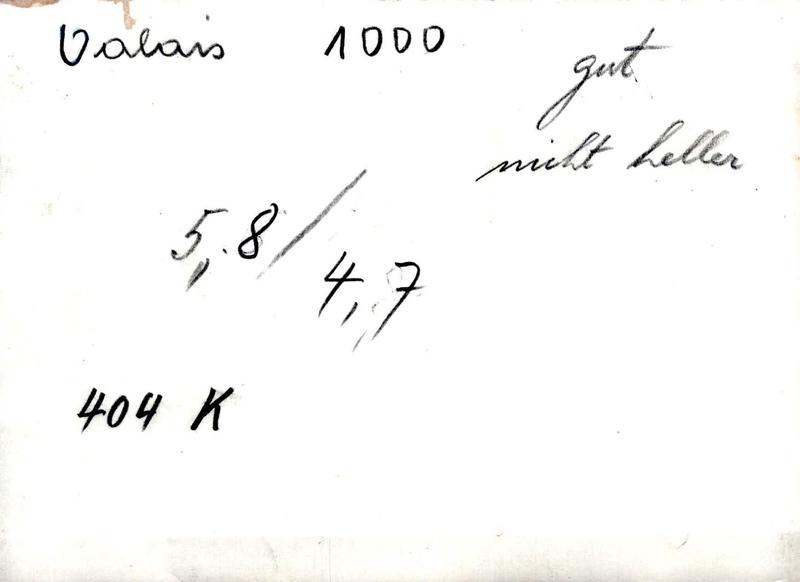 Valais 1000
gut
nicht heller
5,8/
4,7
404 K